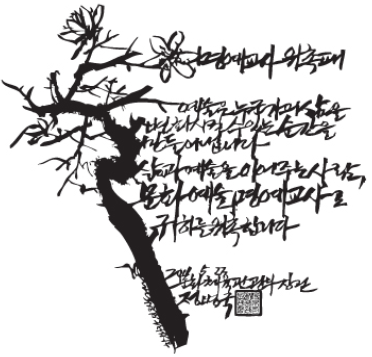 명예교사 위촉패
예술은 누군가의 삶을
변화시킬 수 있는 순간을
만들어냅니다
삶과 예술을 이어주는 사람,
문화예술 명예교사로
귀하를 위촉합니다
문화체육관광부장관
정병국